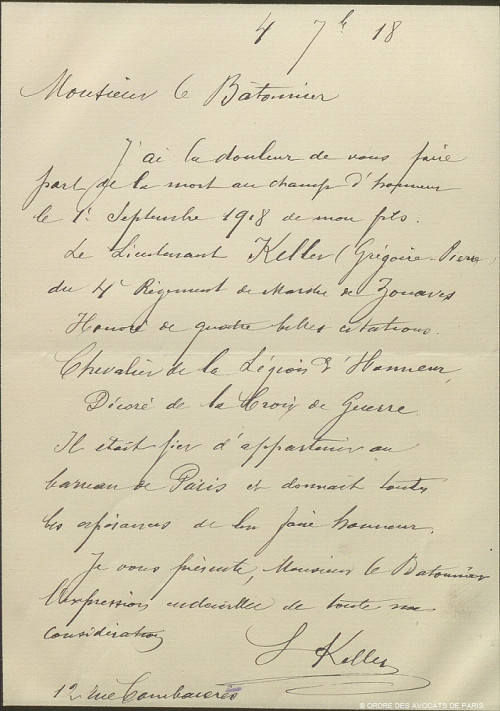 4 7b 18
Monsieur le Bâtonnier
J'ai la douleur de vous faire
part de la mort au champ d'honneur
le 1er Septembre 1918 de mon fils.
Le Lieutenant Keller (Grégoire-Pierre)
du 4e Régiment de Marche de Zouaves
Honoré de quatre belles citations.
Chevalier de la Légion d'Honneur,
Décoré de la Croix de Guerre.
Il était fier d'appartenir au
barreau de Paris et donnait toutes
les espérances de lui faire honneur.
Je vous présente, Monsieur le Batonnier
l'expression endeuillée de toute ma
considération
Keller
12 rue Combacérès
© ORDRE DES AVOCATS DE PARIS